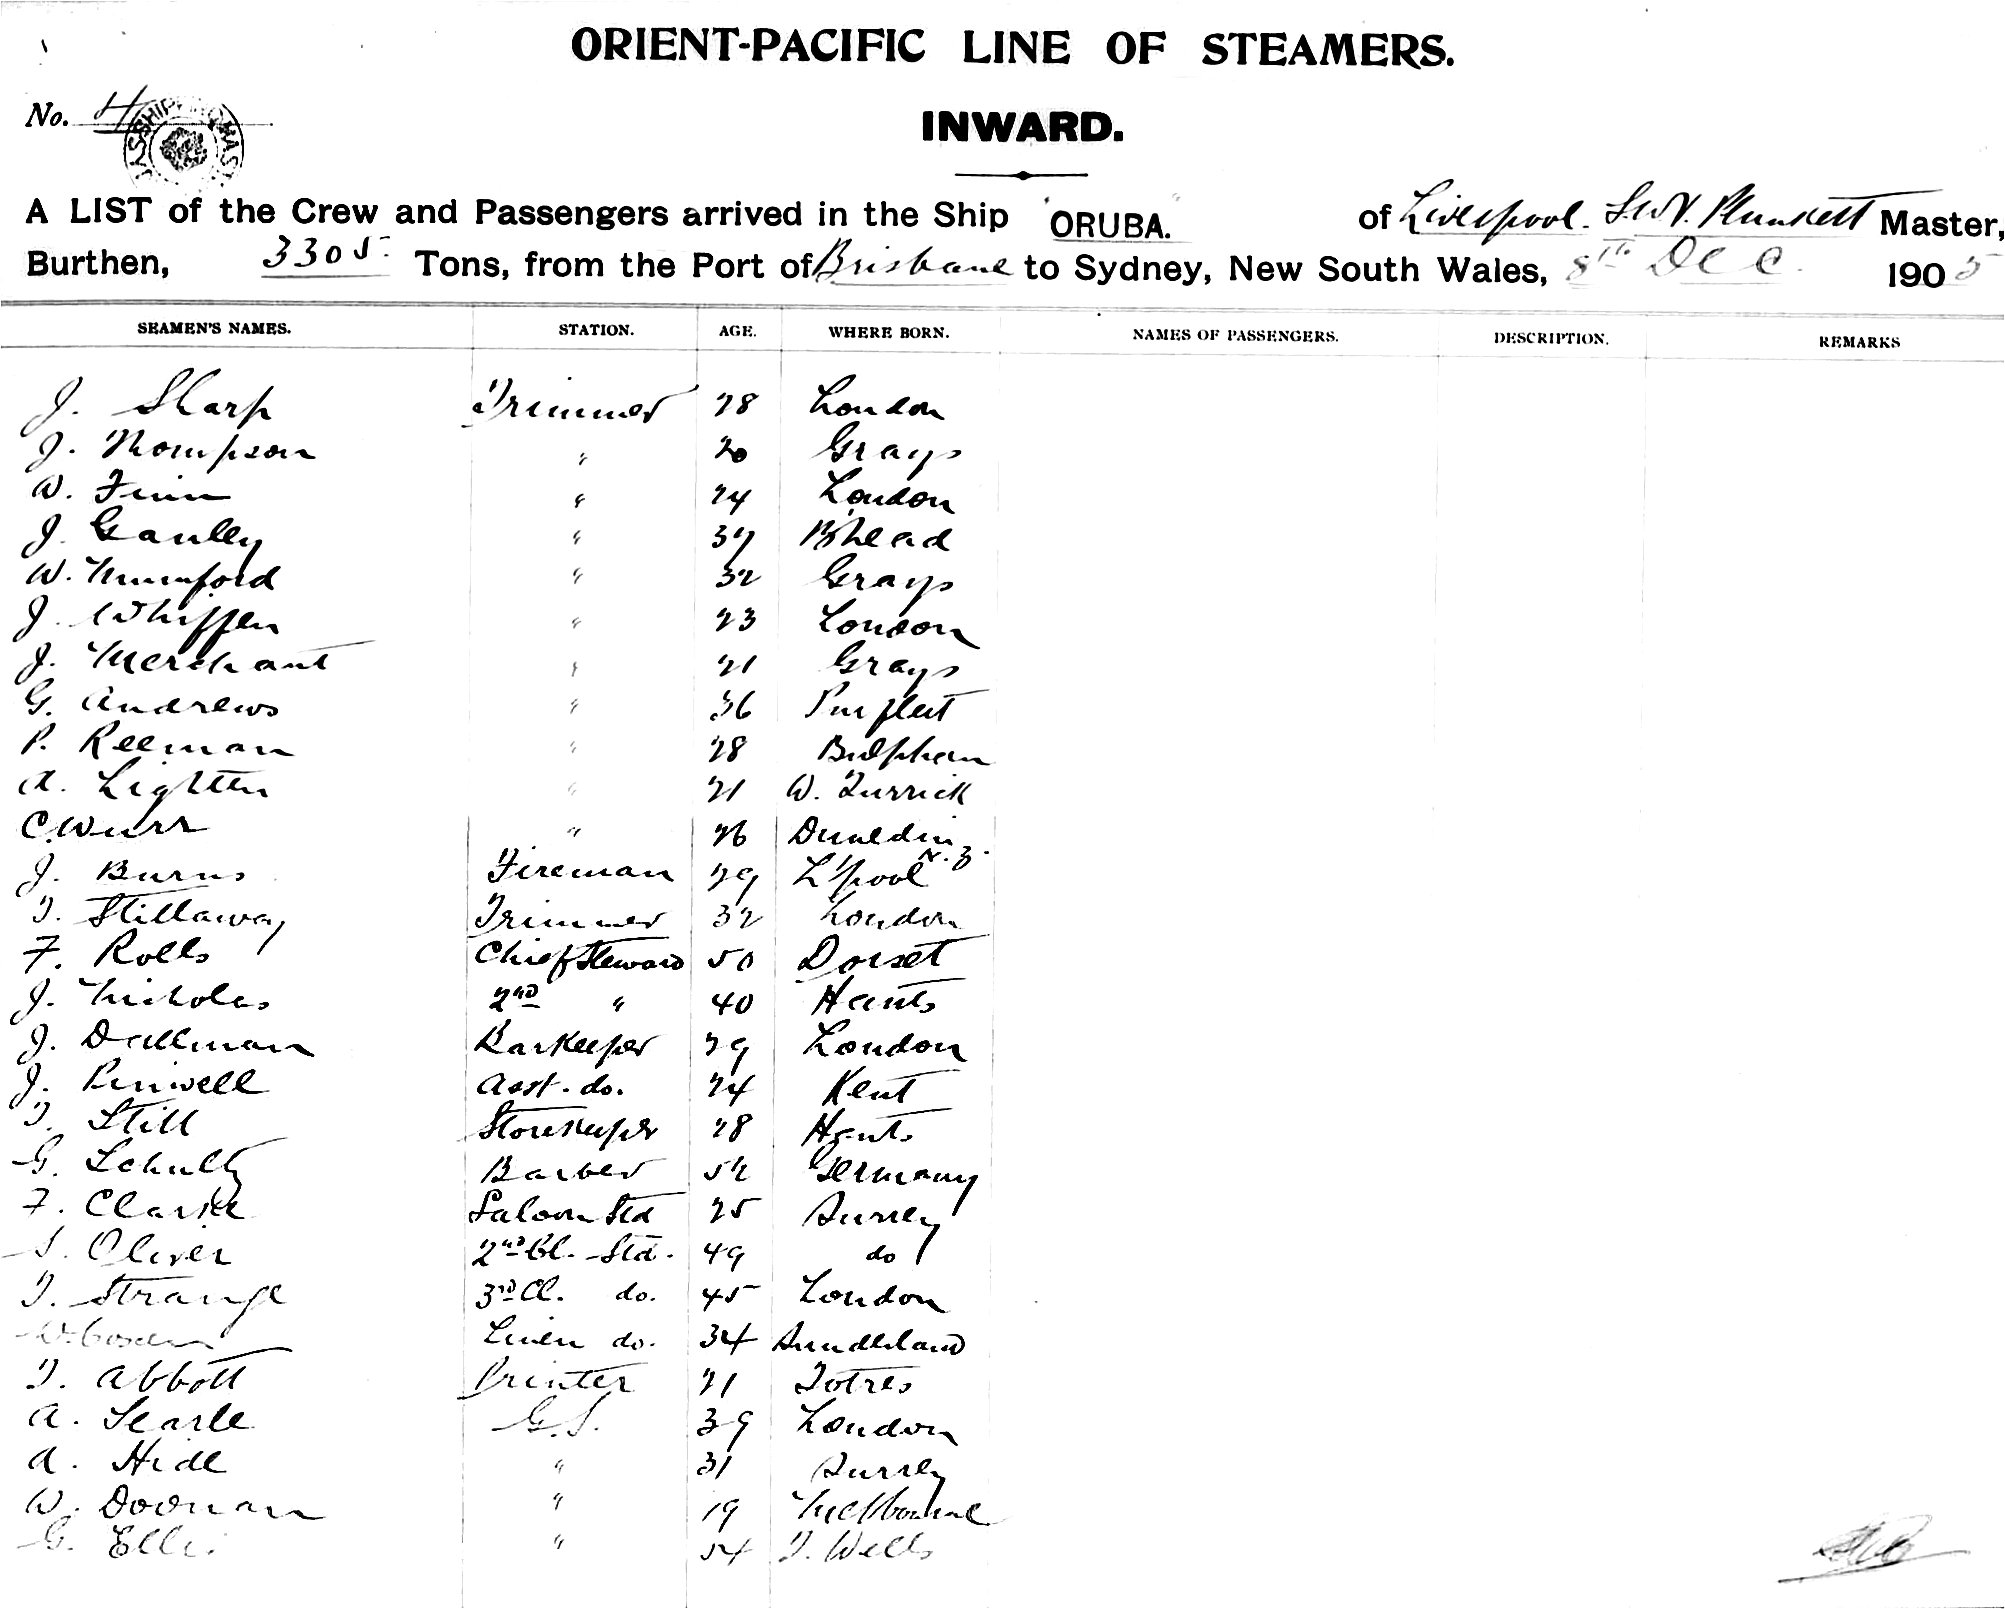 ORIENT-PACIFIC LINE OF STEAMERS.
No. 4
INWARD.
A LIST of the Crew and Passengers arrived in the Ship "ORUBA." of Liverpool. Plunkett Master,
Burthen, 3305 Tons, from the Port of Brisbane to Sydney, New South Wales, 8th Dec 1905
SEAMEN'S NAMES. STATION. AGE. WHERE BORN. NAMES OF PASSENGERS. DESCRIPTION. REMARKS
J. Sharp Trimmer 28 London
J. Thompson " 20 Grays
W. Finn " 24 London
J. Gaulley " 37 B'head
W. Mumford " 32 Grays
J. Whiffen " 23 London
J. Merchant " 21 Grays
G. Andrews " 36 Purfleet
P. Reeman " 28 Bulphan
A. Lighten " 21 W. Turrick
C. Wurr " 26 Dunedin N.Z.
J. Burns Fireman 29 L'pool
T. Stillaway Trimmer 32 London
F. Rolls Chief Steward 50 Dorset
J. Nicholas 2nd " 40 Hants
J. Dallman Barkeeper 29 London
J. Pinwell Asst. do. 24 Kent
T. Still Storekeeper 28 Hants
G. Schultz Barber 52 Germany
F. Clarke Saloon Std 25 Surrey
S. Oliver 2nd Cl. Std. 49 do
T. Strange 3rd Cl. do. 45 London
W. Linen do. 34 Sunderland
T. Abbott Printer 21 Totnes
A. Searle G.S. 39 London
A. Hide " 31 Surrey
W. Doonan " 19 Melbourne
G. Ellis " 54 T. Wells